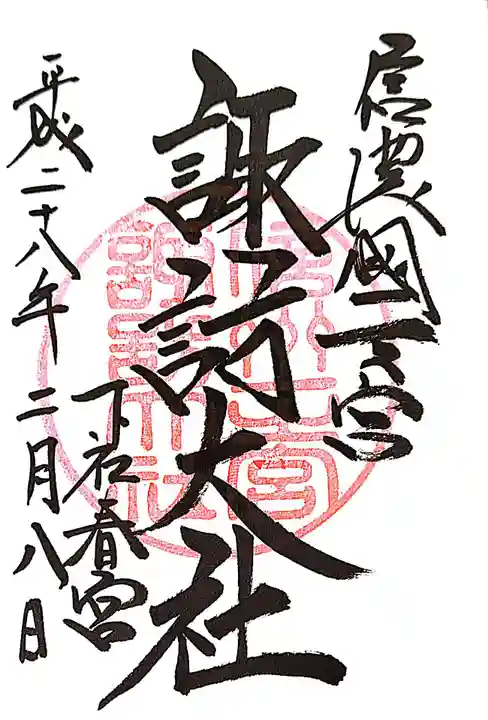 信濃國一之宮
諏訪大社
下社春宮
平成二十八年二月八日